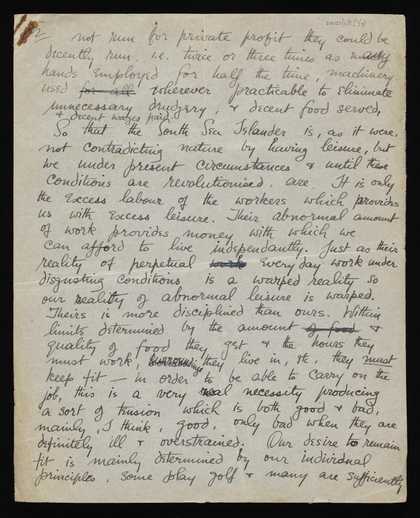 2 not run for private profit they could be
decently run. i.e. twice or three times as many
hands employed for half the time, machinery
used for all wherever practicable to eliminate
unnecessary drudgery, & decent food served,
& decent wages paid.
So that the South Sea Islander is, as it were,
not contradicting nature by having leisure, but
we under present circumstances & until these
conditions are revolutionised. are. It is only
the excess labour of the workers which provides
us with excess leisure. Their abnormal amount
of work provides money with which we
can afford to live independantly. Just as their
reality of perpetual work everyday work under
disgusting conditions is a warped reality so
our reality of abnormal leisure is warped.
Theirs is more disciplined than ours. Within
limits determined by the amount of food &
quality of food they get & the hours they
must work, surroundings they live in, etc, they must
keep fit — in order to be able to carry on the
job, this is a very real necessity producing
a sort of tension which is both good & bad,
mainly, I think, good, only bad when they are
definitely ill & overstrained. Our desire to remain
fit is mainly determined by our individual
principles, some play golf & many are sufficiently